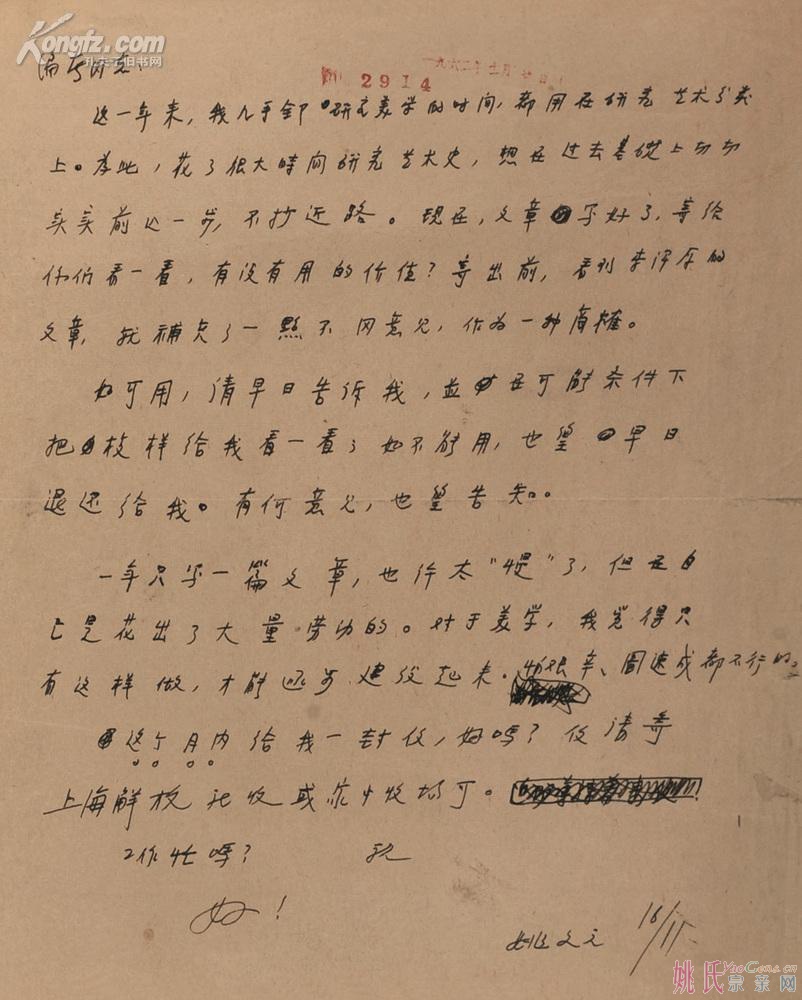 Kongfz.com
孔夫子旧书网
编者同志：
2914
一九六二年 月 日
这一年来，我几乎全部研究美学的时间，都用在研究艺术分类
上。为此，花了很大時间研究艺术史，想在过去基础上切切
实实前进一步，不抄近路。现在，文章写好了，寄给
你们看一看，有没有用的价值？寄出前，看到李泽厚的
文章，就補充了一點不同意见，作为一种商榷。
如可用，请早日告诉我，並在可能条件下
把校样给我看一看；如不能用，也望早日
退还给我。有何意见，也望告知。
一年只写一篇文章，也许太“慢”了，但在自
己是花出了大量劳动的。对于美学，我觉得只
有这样做，才能逐步建设起来。怕艰辛、图速成都不行的。
这个月内给我一封信，好吗？信请寄
上海解放社收或 收均可。
工作忙吗？ 祝
好！
姚文元 16/11
姚氏 YaoGens.cn
宗亲网